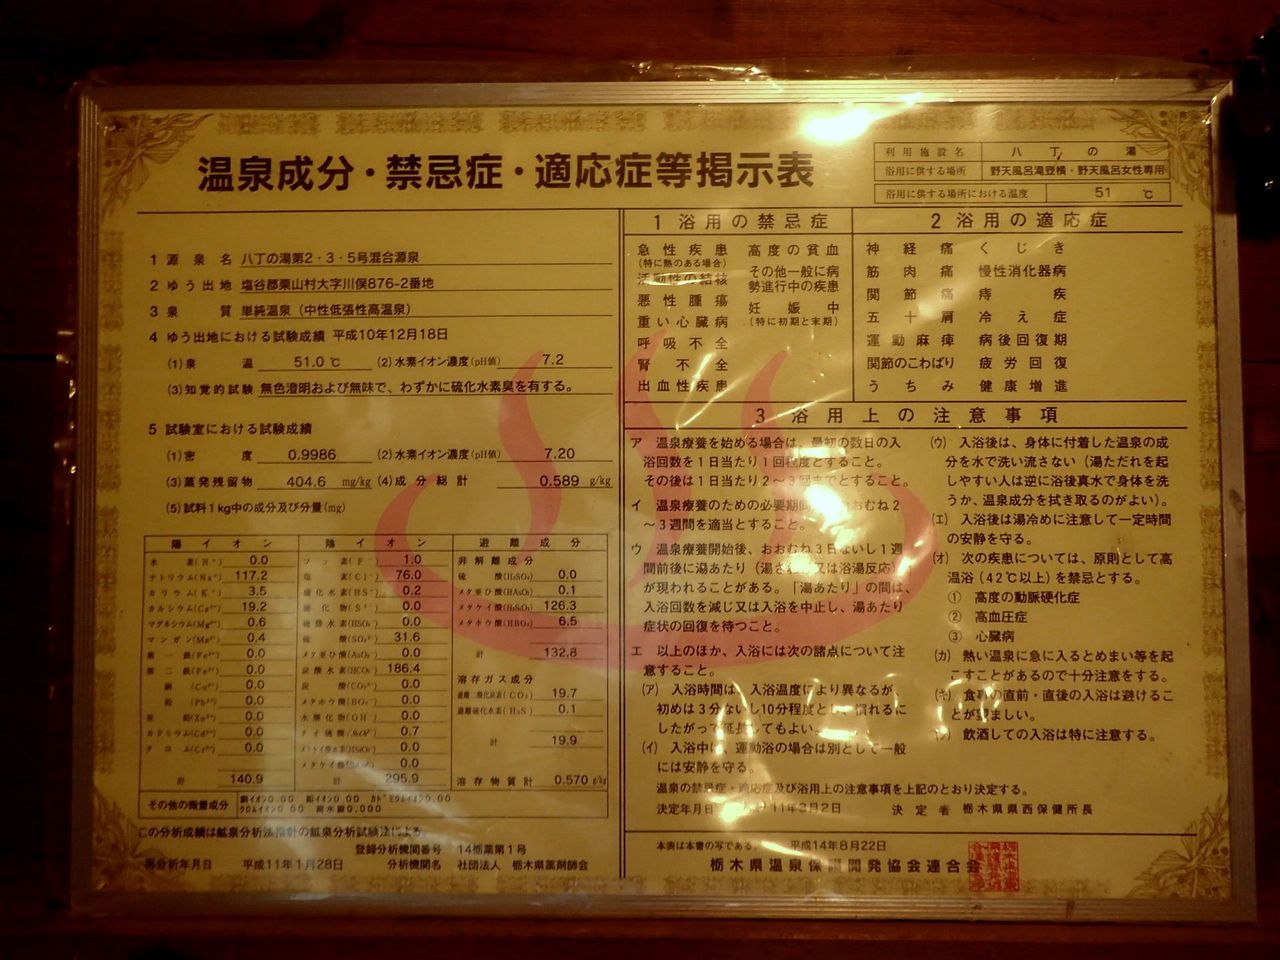 温泉成分・禁忌症・適応症等掲示表
利用施設名 八丁の湯
浴用に供する場所 野天風呂滝壺横・野天風呂女性専用
浴用に供する場所における温度 51 ℃
1 源泉名 八丁の湯第2・3・5号混合源泉
2 ゆう出地 塩谷郡栗山村大字川俣876-2番地
3 泉質 単純温泉(中性低張性高温泉)
4 ゆう出地における試験成績 平成10年12月18日
(1)泉温 51.0 ℃ (2)水素イオン濃度(pH値) 7.2
(3)知覚的試験 無色澄明および無味で、わずかに硫化水素臭を有する。
5 試験室における試験成績
(1)密度 0.9986 (2)水素イオン濃度(pH値) 7.20
(3)蒸発残留物 404.6 mg/kg (4)成分総計 0.589 g/kg
(5)試料1kg中の成分及び分量(mg)
陽イオン
水素(H⁺) 0.0
ナトリウム(Na⁺) 117.2
カリウム(K⁺) 3.5
カルシウム(Ca²⁺) 19.2
マグネシウム(Mg²⁺) 0.6
マンガン(Mn²⁺) 0.4
第一鉄(Fe²⁺) 0.0
第二鉄(Fe³⁺) 0.0
銅(Cu²⁺) 0.0
鉛(Pb²⁺) 0.0
亜鉛(Zn²⁺) 0.0
カドミウム(Cd²⁺) 0.0
クロム(Cr³⁺) 0.0
計 140.9
陰イオン
フッ素(F⁻) 1.0
塩素(Cl⁻) 76.0
硫化水素(HS⁻) 0.2
硫化物(S²⁻) 0.0
硫酸水素(HSO₄⁻) 0.0
硫酸(SO₄²⁻) 31.6
メタ亜ひ酸(AsO₂⁻) 0.0
炭酸水素(HCO₃⁻) 186.4
炭酸(CO₃²⁻) 0.0
メタホウ酸(BO₂⁻) 0.0
水酸化物(OH⁻) 0.0
チオ硫酸 0.7
メタケイ酸水素(HSiO₃⁻) 0.0
メタケイ酸 0.0
計 295.9
遊離成分
非解離成分
硫酸(H₂SO₄) 0.0
メタ亜ひ酸(HAsO₂) 0.1
メタケイ酸(H₂SiO₃) 126.3
メタホウ酸(HBO₂) 6.5
計 132.8
溶存ガス成分
遊離二酸化炭素(CO₂) 19.7
遊離硫化水素(H₂S) 0.1
計 19.9
溶存物質計 0.570 g/kg
その他の微量成分 銅イオン0.00 鉛イオン0.00 カドミウムイオン0.00
クロムイオン0.00 総水銀0.000
この分析成績は鉱泉分析法指針の鉱泉分析試験法による
登録分析機関番号 14栃薬第1号
再分析年月日 平成11年1月28日 分析機関名 社団法人 栃木県薬剤師会
1 浴用の禁忌症
急性疾患
(特に熱のある場合)
活動性の結核
悪性腫瘍
重い心臓病
呼吸不全
腎不全
出血性疾患
高度の貧血
その他一般に病
勢進行中の疾患
妊娠中
(特に初期と末期)
2 浴用の適応症
神経痛
筋肉痛
関節痛
五十肩
運動麻痺
関節のこわばり
うちみ
くじき
慢性消化器病
痔疾
冷え症
病後回復期
疲労回復
健康増進
3 浴用上の注意事項
ア 温泉療養を始める場合は、最初の数日の入
浴回数を1日当たり1回程度とすること。
その後は1日当たり2〜3回までとすること。
イ 温泉療養のための必要期間 おおむね2
〜3週間を適当とすること。
ウ 温泉療養開始後、おおむね3日ないし1週
間前後に湯あたり(湯さわり又は浴湯反応)
が現われることがある。「湯あたり」の間は、
入浴回数を減じ又は入浴を中止し、湯あたり
症状の回復を待つこと。
エ 以上のほか、入浴には次の諸点について注
意すること。
(ア) 入浴時間は、入浴温度により異なるが、
初めは3分ないし10分程度とし、慣れるに
したがって延長してもよい。
(イ) 入浴中は、運動浴の場合は別として一般
には安静を守る。
(ウ) 入浴後は、身体に付着した温泉の成
分を水で洗い流さない(湯ただれを起
しやすい人は逆に浴後真水で身体を洗
うか、温泉成分を拭き取るのがよい)。
(エ) 入浴後は湯冷めに注意して一定時間
の安静を守る。
(オ) 次の疾患については、原則として高
温浴(42℃以上)を禁忌とする。
① 高度の動脈硬化症
② 高血圧症
③ 心臓病
(カ) 熱い温泉に急に入るとめまい等を起
こすことがあるので十分注意をする。
(キ) 食事の直前・直後の入浴は避けるこ
とが望ましい。
(ク) 飲酒しての入浴は特に注意する。
温泉の禁忌症・適応症及び浴用上の注意事項を上記のとおり決定する。
決定年月日 平成11年3月2日 決定者 栃木県県西保健所長
本表は本書の写である。 平成14年8月22日
栃木県温泉保護開発協会連合会